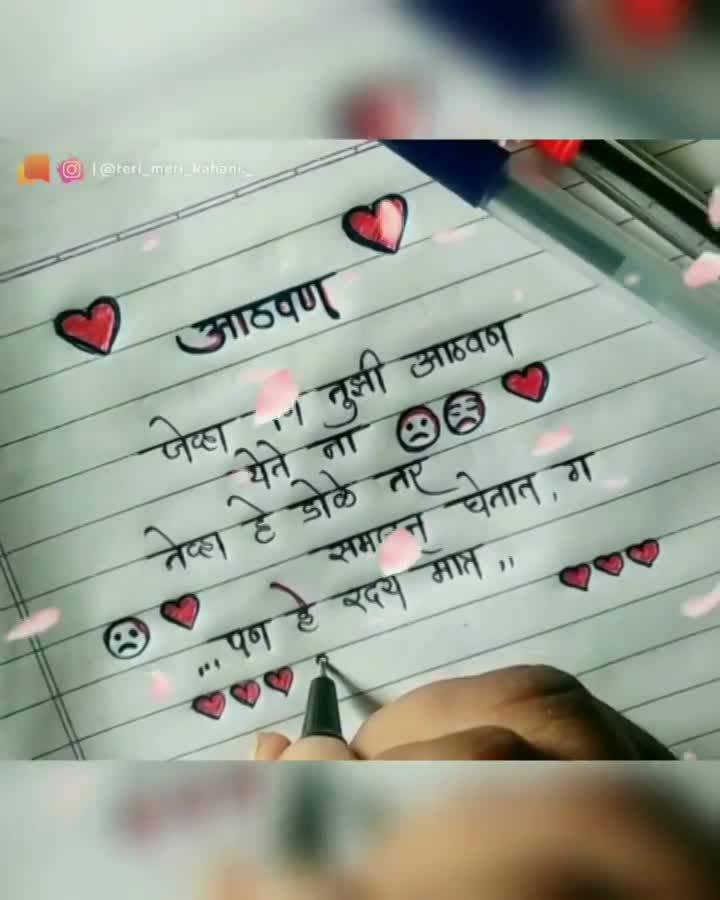 | @teri_meri_kahani._
आठवण
जेव्हा तुझी आठवण
येते ना
तेव्हा हे डोळे तर
समजून घेतात, ग
... पण हे रदय मात्र ,,